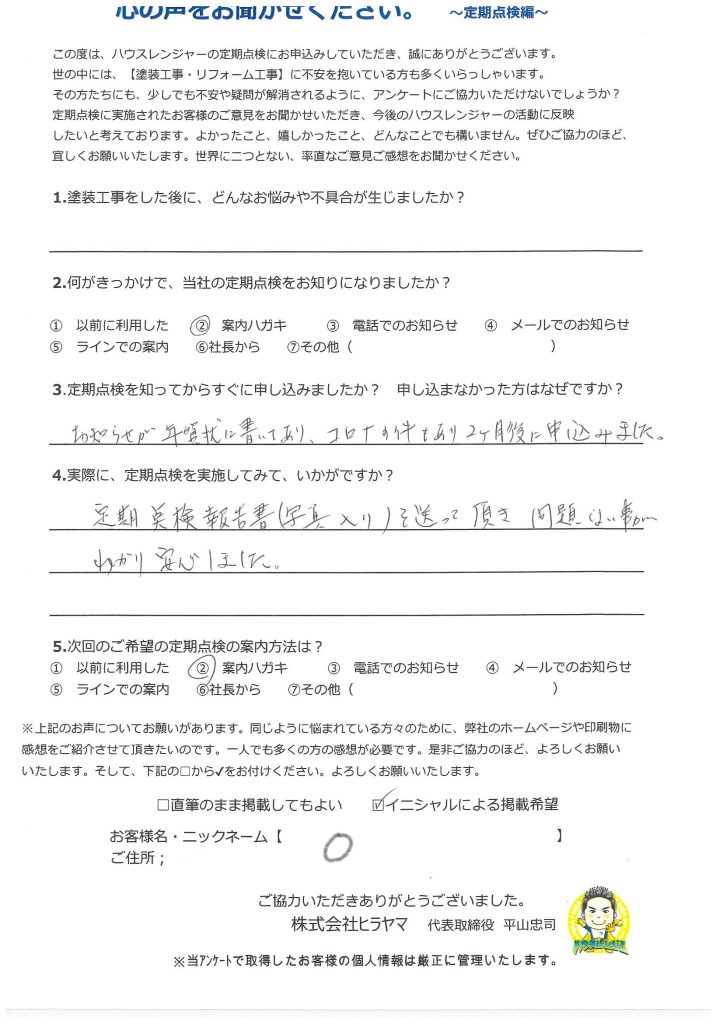 心の声をお聞かせください。 ～定期点検編～
この度は、ハウスレンジャーの定期点検にお申込みしていただき、誠にありがとうございます。
世の中には、【塗装工事・リフォーム工事】に不安を抱いている方も多くいらっしゃいます。
その方たちにも、少しでも不安や疑問が解消されるように、アンケートにご協力いただけないでしょうか？
定期点検に実施されたお客様のご意見をお聞かせいただき、今後のハウスレンジャーの活動に反映
したいと考えております。よかったこと、嬉しかったこと、どんなことでも構いません。ぜひご協力のほど、
宜しくお願いいたします。世界に二つとない、率直なご意見ご感想をお聞かせください。
1.塗装工事をした後に、どんなお悩みや不具合が生じましたか？
2.何がきっかけで、当社の定期点検をお知りになりましたか？
① 以前に利用した ② 案内ハガキ ③ 電話でのお知らせ ④ メールでのお知らせ
⑤ ラインでの案内 ⑥社長から ⑦その他（ ）
3.定期点検を知ってからすぐに申し込みましたか？ 申し込まなかった方はなぜですか？
お知らせが年賀状に書いてあり、コロナの件もあり2ヶ月後に申込みました。
4.実際に、定期点検を実施してみて、いかがですか？
定期点検報告書(写真入り)を送って頂き 問題ない事が
わかり安心しました。
5.次回のご希望の定期点検の案内方法は？
① 以前に利用した ② 案内ハガキ ③ 電話でのお知らせ ④ メールでのお知らせ
⑤ ラインでの案内 ⑥社長から ⑦その他（ ）
※上記のお声についてお願いがあります。同じように悩まれている方々のために、弊社のホームページや印刷物に
感想をご紹介させて頂きたいのです。一人でも多くの方の感想が必要です。是非ご協力のほど、よろしくお願い
いたします。そして、下記の□から✓をお付けください。よろしくお願いいたします。
□直筆のまま掲載してもよい ☑イニシャルによる掲載希望
お客様名・ニックネーム【 O 】
ご住所；
ご協力いただきありがとうございました。
株式会社ヒラヤマ 代表取締役 平山忠司
※当アンケートで取得したお客様の個人情報は厳正に管理いたします。